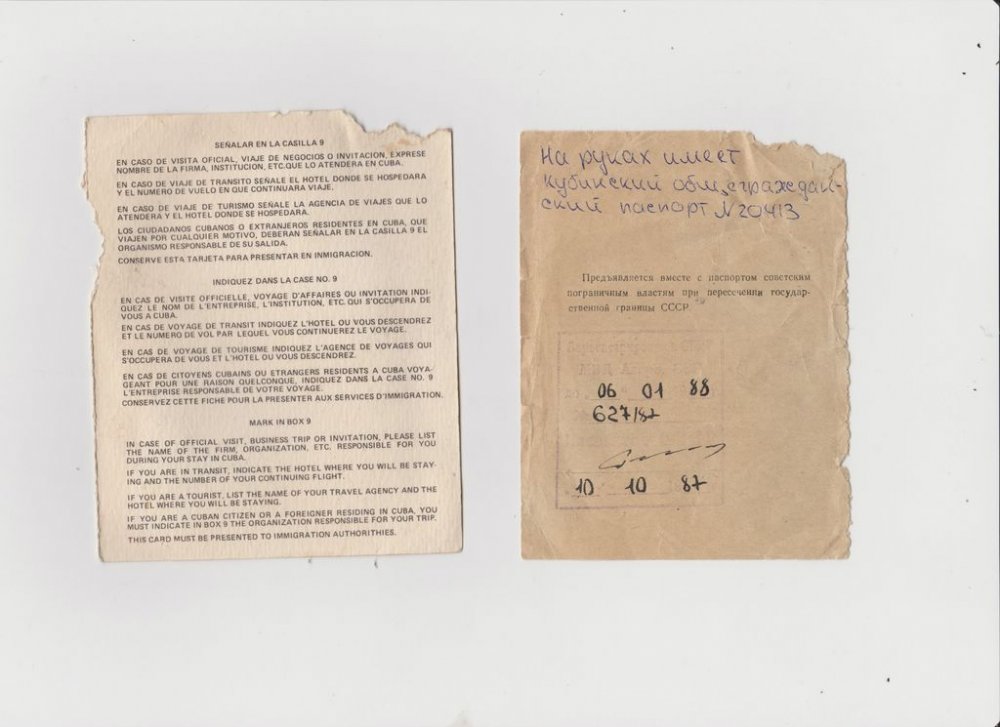 SEÑALAR EN LA CASILLA 9
EN CASO DE VISITA OFICIAL, VIAJE DE NEGOCIOS O INVITACION, EXPRESE
NOMBRE DE LA FIRMA, INSTITUCION, ETC.QUE LO ATENDERA EN CUBA.
EN CASO DE VIAJE DE TRANSITO SEÑALE EL HOTEL DONDE SE HOSPEDARA
Y EL NUMERO DE VUELO EN QUE CONTINUARA VIAJE.
EN CASO DE VIAJE DE TURISMO SEÑALE LA AGENCIA DE VIAJES QUE LO
ATENDERA Y EL HOTEL DONDE SE HOSPEDARA.
LOS CIUDADANOS CUBANOS O EXTRANJEROS RESIDENTES EN CUBA, QUE
VIAJEN POR CUALQUIER MOTIVO, DEBERAN SEÑALAR EN LA CASILLA 9 EL
ORGANISMO RESPONSABLE DE SU SALIDA.
CONSERVE ESTA TARJETA PARA PRESENTAR EN INMIGRACION.
INDIQUEZ DANS LA CASE NO. 9
EN CAS DE VISITE OFFICIELLE, VOYAGE D'AFFAIRES OU INVITATION INDI-
QUEZ LE NOM DE L'ENTREPRISE, L'INSTITUTION, ETC. QUI S'OCCUPERA DE
VOUS A CUBA.
EN CAS DE VOYAGE DE TRANSIT INDIQUEZ L'HOTEL OU VOUS DESCENDREZ
ET LE NUMERO DE VOL PAR LEQUEL VOUS CONTINUEREZ LE VOYAGE.
EN CAS DE VOYAGE DE TOURISME INDIQUEZ L'AGENCE DE VOYAGES QUI
S'OCCUPERA DE VOUS ET L'HOTEL OU VOUS DESCENDREZ.
EN CAS DE CITOYENS CUBAINS OU ETRANGERS RESIDENTS A CUBA VOYA-
GEANT POUR UNE RAISON QUELCONQUE, INDIQUEZ DANS LA CASE NO. 9
L'ENTREPRISE RESPONSABLE DE VOTRE VOYAGE.
CONSERVEZ CETTE FICHE POUR LA PRESENTER AUX SERVICES D'IMMIGRATION.
MARK IN BOX 9
IN CASE OF OFFICIAL VISIT, BUSINESS TRIP OR INVITATION, PLEASE LIST
THE NAME OF THE FIRM, ORGANIZATION, ETC. RESPONSIBLE FOR YOU
DURING YOUR STAY IN CUBA.
IF YOU ARE IN TRANSIT, INDICATE THE HOTEL WHERE YOU WILL BE STAY-
ING AND THE NUMBER OF YOUR CONTINUING FLIGHT.
IF YOU ARE A TOURIST, LIST THE NAME OF YOUR TRAVEL AGENCY AND THE
HOTEL WHERE YOU WILL BE STAYING.
IF YOU ARE A CUBAN CITIZEN OR A FOREIGNER RESIDING IN CUBA, YOU
MUST INDICATE IN BOX 9 THE ORGANIZATION RESPONSIBLE FOR YOUR TRIP.
THIS CARD MUST BE PRESENTED TO IMMIGRATION AUTHORITHIES.
На руках имеет
кубинский общеграждан-
ский паспорт N 20413
Предъявляется вместе с паспортом советским
пограничным властям при пересечении государ-
ственной границы СССР
МВД
06 01 88
627/87
10 10 87